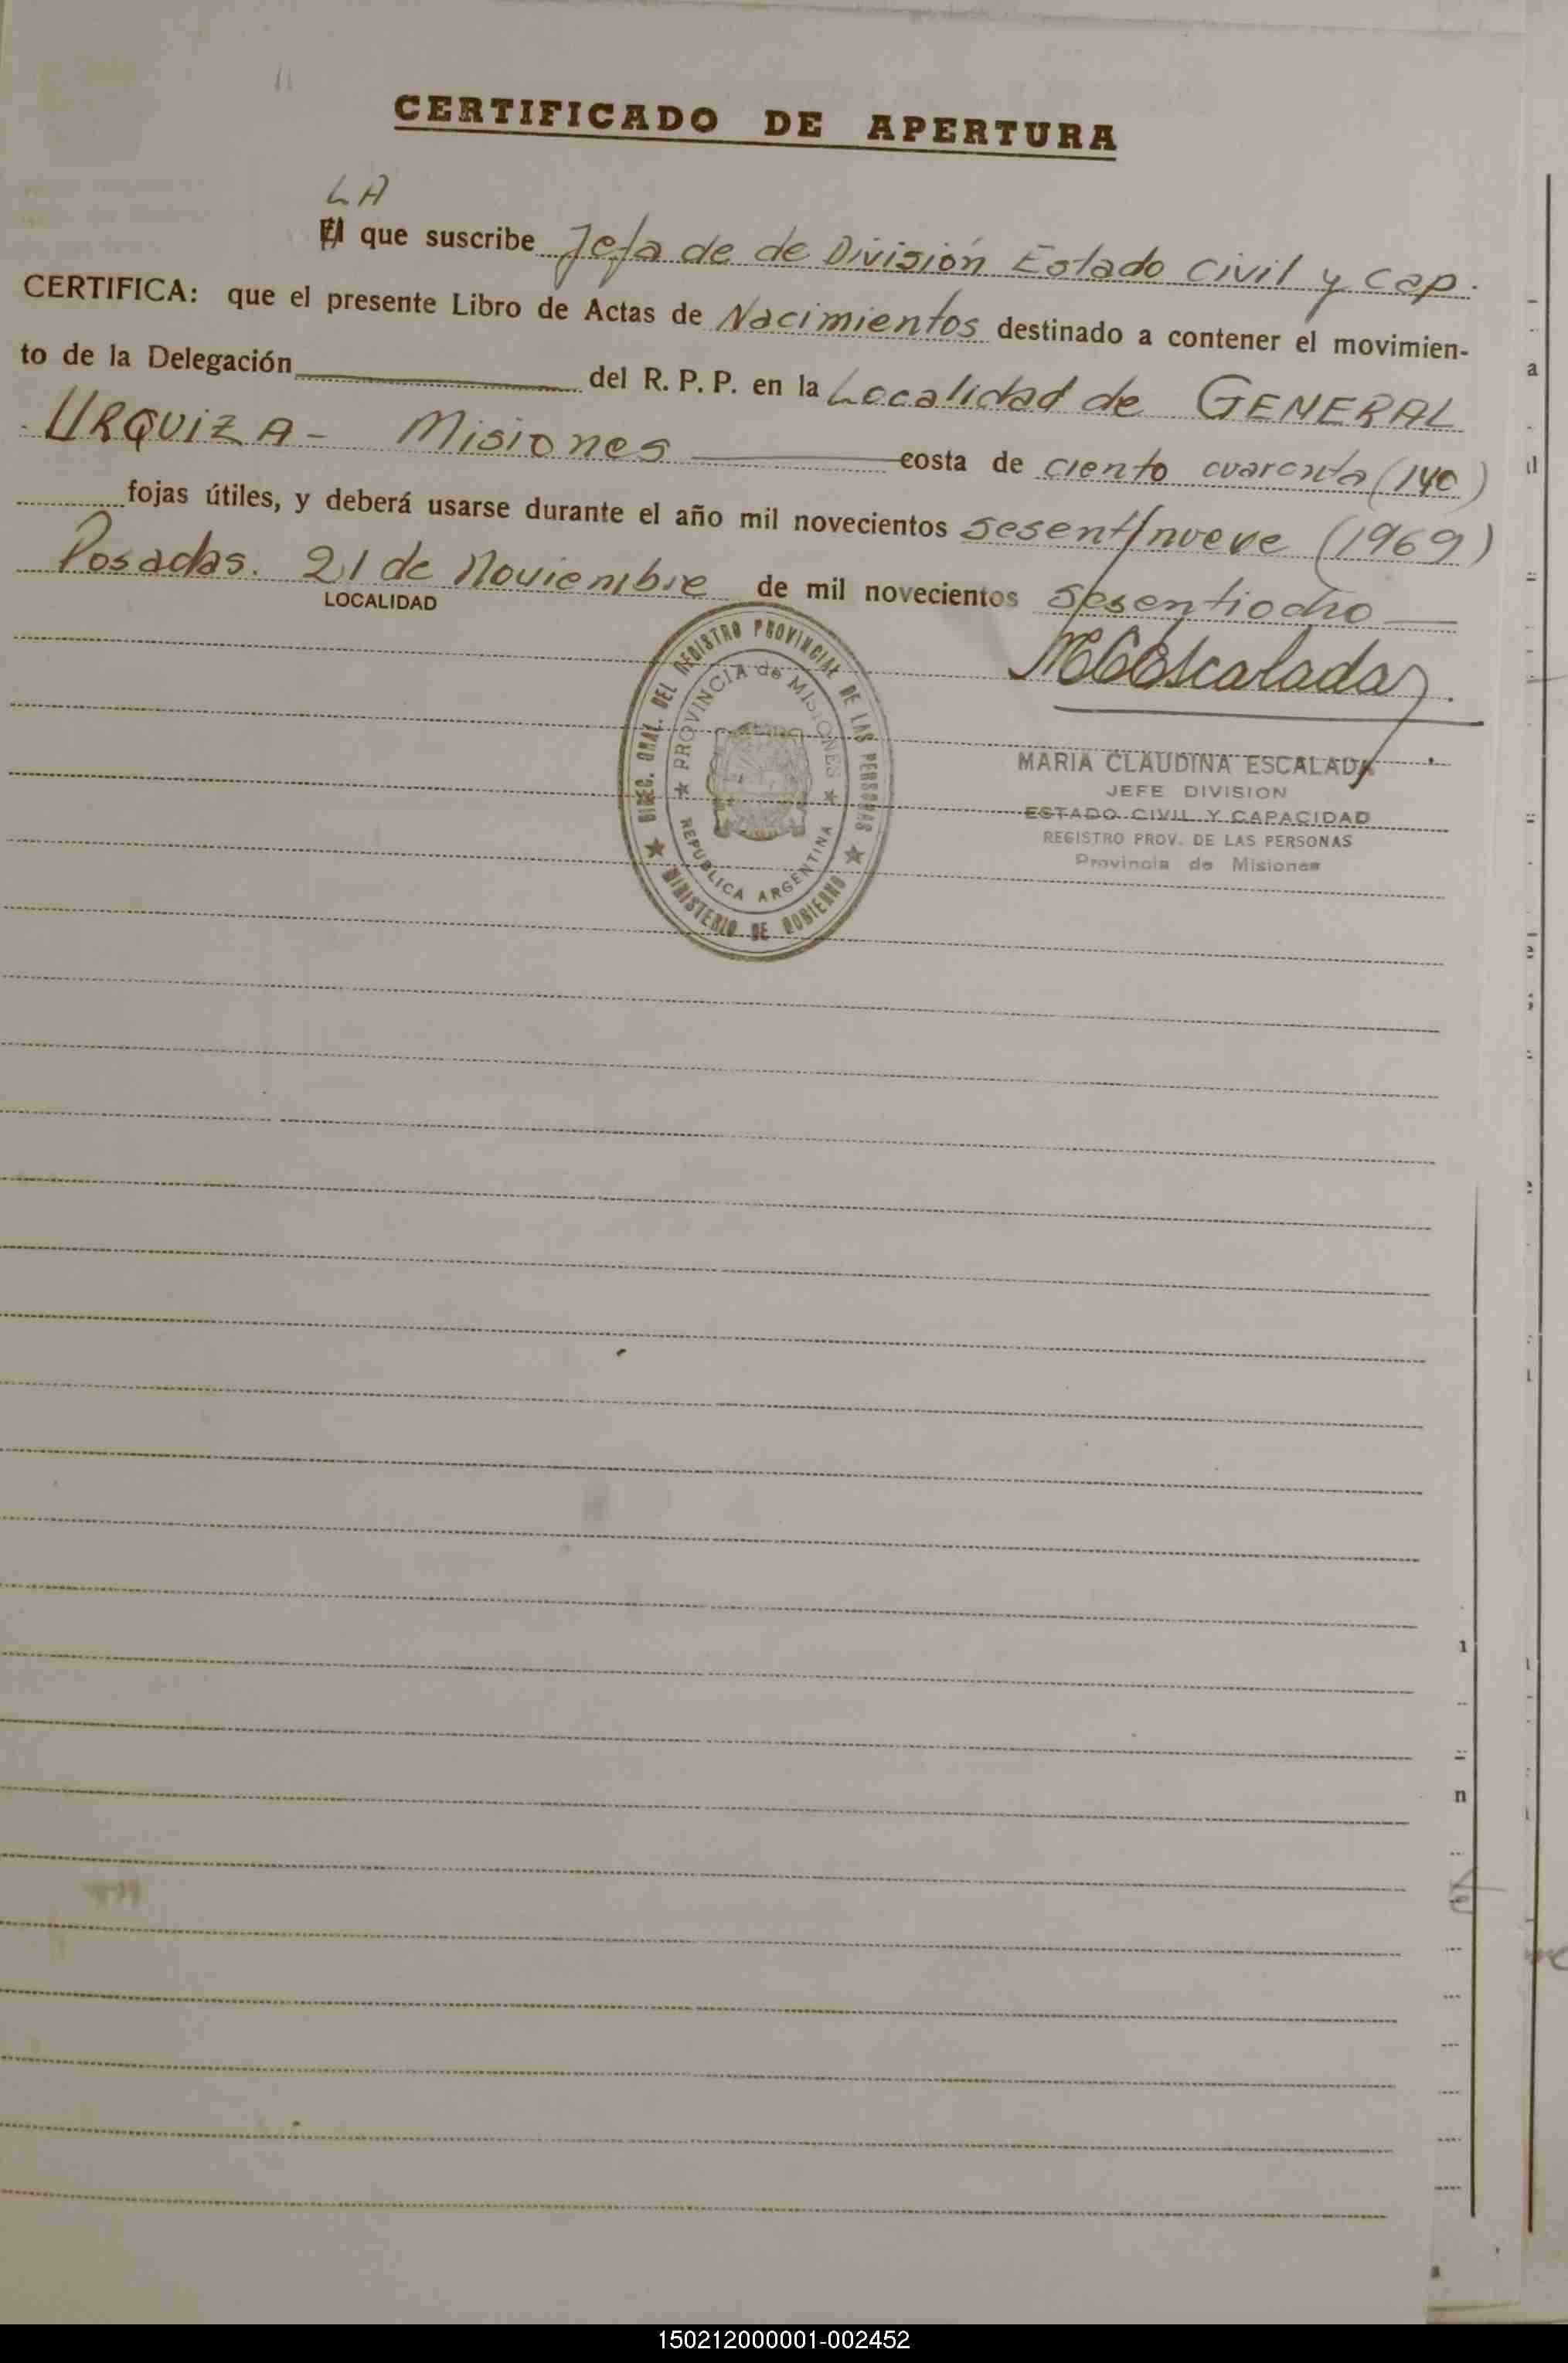 CERTIFICADO DE APERTURA
LA
El que suscribe Jefa de de División Estado Civil y Cap.
CERTIFICA: que el presente Libro de Actas de Nacimientos destinado a contener el movimien-
to de la Delegación del R. P. P. en la Localidad de GENERAL
URQUIZA - Misiones costa de ciento cuarenta (140)
fojas útiles, y deberá usarse durante el año mil novecientos sesentinueve (1969)
Posadas. 21 de Noviembre de mil novecientos sesentiocho
LOCALIDAD
MCEscalada
DIREC. GRAL. DEL REGISTRO PROVINCIAL DE LAS PERSONAS
PROVINCIA de MISIONES
REPUBLICA ARGENTINA
MINISTERIO DE GOBIERNO
MARIA CLAUDINA ESCALADA
JEFE DIVISION
ESTADO CIVIL Y CAPACIDAD
REGISTRO PROV. DE LAS PERSONAS
Provincia de Misiones
150212000001-002452